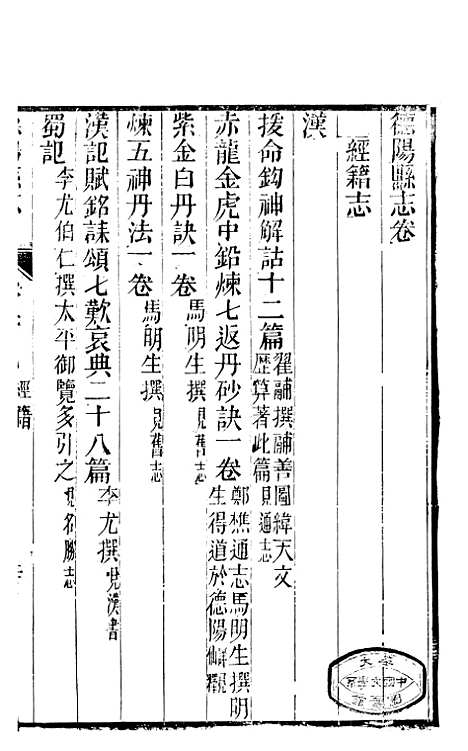 德陽縣志卷
經籍志
漢
援命鉤神解詁十二篇 翟酺撰酺善圖緯天文
歷算著此篇見通志
赤龍金虎中鉛煉七返丹砂訣一卷 鄭樵通志馬明生撰明
生得道於德陽
紫金白丹訣一卷 馬明生撰見舊志
煉五神丹法一卷 馬明生撰見舊志
漢記賦銘誄頌七歎哀典二十八篇 李尤撰見漢書
蜀記 李尤伯仁撰太平御覽多引之見名勝志
經籍